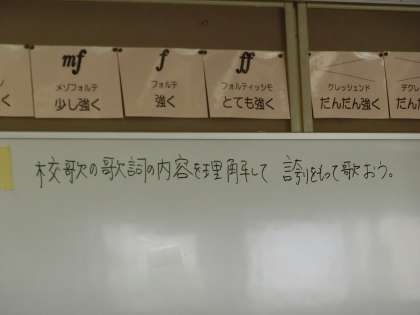 mf
メゾフォルテ
少し強く
f
フォルテ
強く
ff
フォルティッシモ
とても強く
クレッシェンド
だんだん強く
だんだん
校歌の歌詞の内容を理解して 誇りをもって歌おう。